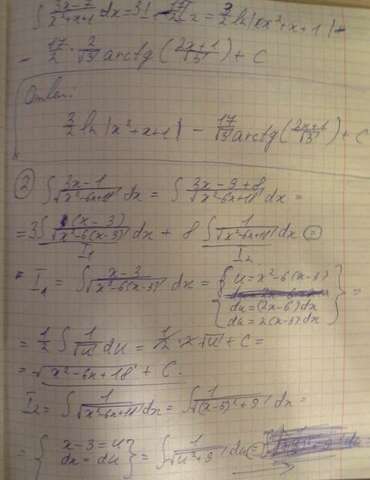 ∫ (3x-7)/(x²+x+1) dx = 3I₁ - 17/2 I₂ = 3/2 ln|x²+x+1| -
- 17/2 · 2/√3 arctg (2x+1/√3) + C
Ответ:
3/2 ln|x²+x+1| - 17/√3 arctg(2x+1/√3) + C
② ∫ (3x-1)/√(x²-6x+18) dx = ∫ (3x-9+8)/√(x²-6x+18) dx =
= 3∫ (x-3)/√(x²-6(x-3)) dx + 8∫ 1/√(x²-6x+18) dx =
I₁ I₂
I₁ = ∫ (x-3)/√(x²-6(x-3)) dx = { u = x²-6(x-3)
du = (2x-6)dx
du = 2(x-3)dx } =
= 1/2 ∫ 1/√u du = 1/2 · 2 √u + C =
= √(x²-6x+18) + C.
I₂ = ∫ 1/√(x²-6x+18) dx = ∫ 1/√((x-3)²+9) dx =
= { x-3 = u
dx = du } = ∫ 1/√(u²+9) du =